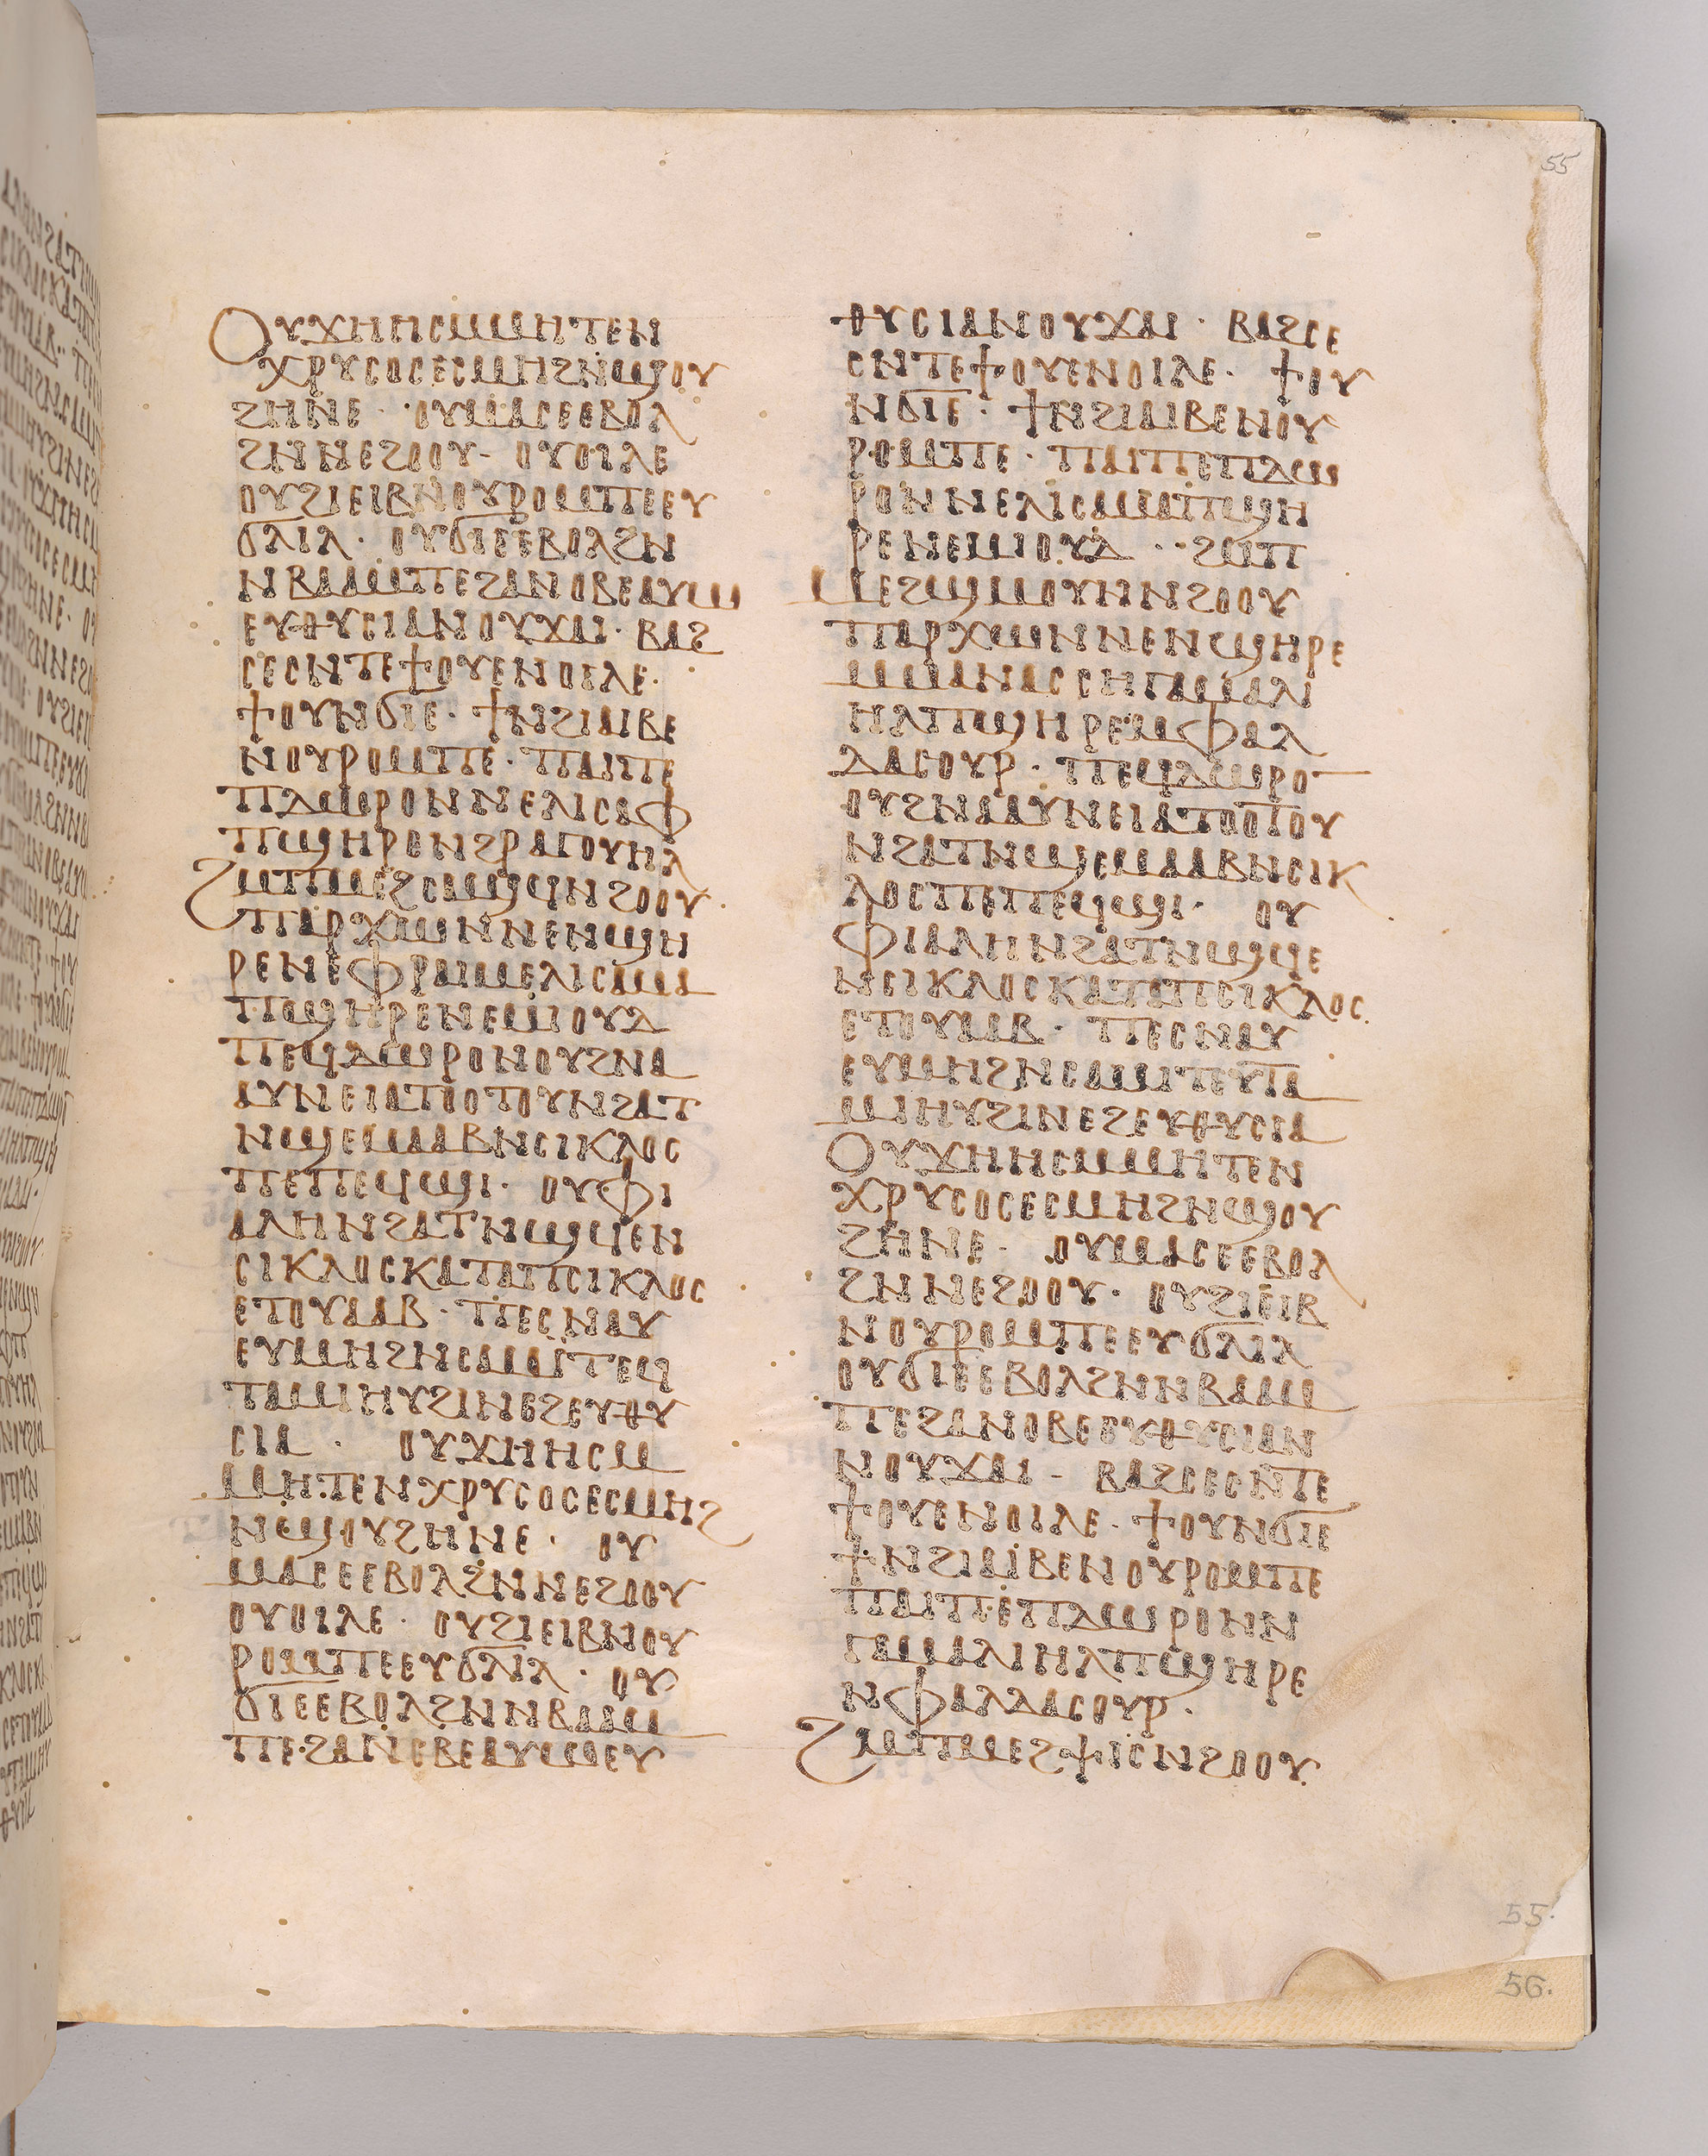 55
ⲟⲩϫⲏⲏⲥⲙⲙⲏⲧⲉⲛ
ⲭⲣⲩⲥⲟⲥⲉⲥⲙⲏϩⲛϣⲟⲩ
ϩⲏⲛⲉ · ⲟⲩⲙⲁⲥⲉⲉⲃⲟⲗ
ϩⲛⲛⲉϩⲟⲟⲩ · ⲟⲩⲟⲓⲗⲉ
ⲟⲩϩⲓⲉⲓⲃⲛⲟⲩⲣⲟⲙⲡⲉⲉⲩ
ϭⲗⲓⲗ · ⲟⲩϭⲓⲉⲉⲃⲟⲗϩⲛ
ⲛⲃⲁⲁⲙⲡⲉϩⲁⲛⲟⲃⲉⲁⲩⲱ
ⲉⲩⲑⲩⲥⲓⲁⲛⲟⲩϫⲁⲓ · ⲃⲁϩ
ⲥⲉⲥⲛⲧⲉϯⲟⲩⲉⲛⲟⲓⲗⲉ ·
ϯⲟⲩⲛϭⲓⲉ · ϯⲛϩⲓⲁⲓⲃⲉ
ⲛⲟⲩⲣⲟⲙⲡⲉ · ⲡⲁⲓⲡⲉ
ⲡⲇⲱⲣⲟⲛⲛⲉⲗⲓⲥⲁⲫ
ⲡϣⲏⲣⲉⲛϩⲣⲁⲅⲟⲩⲏⲗ
ϩⲙⲡⲙⲉϩⲥⲁϣϥⲛϩⲟⲟⲩ
ⲡⲁⲣⲭⲱⲛⲛⲉⲛϣⲏ
ⲣⲉⲛⲉⲫⲣⲁⲓⲙⲉⲗⲓⲥⲁⲙⲁ
ⲡϣⲏⲣⲉⲛⲉⲙⲓⲟⲩⲇ
ⲡⲉϥⲇⲱⲣⲟⲛⲟⲩϩⲛⲁ
ⲁⲩⲛⲉⲓⲁⲡⲟⲧⲟⲩⲛϩⲁⲧ
ⲛϣⲉⲙⲁⲁⲃⲛⲥⲓⲕⲗⲟⲥ
ⲡⲉⲡⲉϥϣⲓ · ⲟⲩⲫⲓ
ⲁⲗⲏⲛϩⲁⲧⲛϣϥⲉⲛ
ⲥⲓⲕⲗⲟⲥⲕⲁⲧⲁⲡⲥⲓⲕⲗⲟⲥ
ⲉⲧⲟⲩⲁⲁⲃ · ⲡⲉⲥⲛⲁⲩ
ⲉⲩⲙⲏϩⲛⲥⲁⲙⲓⲧⲉϥ
ⲧⲁⲙⲏⲩϩⲓⲛⲉϩⲉⲩⲑⲩ
ⲥⲓⲁ · ⲟⲩϫⲏⲏⲥⲙ
ⲙⲏⲧⲉⲛⲭⲣⲩⲥⲟⲥⲉⲥⲙⲏϩ
ⲛϣⲟⲩϩⲏⲛⲉ · ⲟⲩ
ⲙⲁⲥⲉⲉⲃⲟⲗϩⲛⲛⲉϩⲟⲟⲩ
ⲟⲩⲟⲓⲗⲉ · ⲟⲩϩⲓⲉⲓⲃⲛⲟⲩ
ⲣⲟⲙⲡⲉⲉⲩϭⲗⲓⲗ · ⲟⲩ
ϭⲓⲉⲉⲃⲟⲗϩⲛⲛⲃⲁⲁⲙ
ⲡⲉϩⲁⲛⲟⲃⲉⲁⲩⲱⲉⲩ
ⲑⲩⲥⲓⲁⲛⲟⲩϫⲁⲓ · ⲃⲁϩⲥⲉ
ⲥⲛⲧⲉϯⲟⲩⲉⲛⲟⲓⲗⲉ · ϯⲟⲩ
ⲛϭⲓⲉ · ϯⲛϩⲓⲁⲓⲃⲉⲛⲟⲩ
ⲣⲟⲙⲡⲉ · ⲡⲁⲓⲡⲉⲡⲇⲱ
ⲣⲟⲛⲛⲉⲗⲓⲥⲁⲙⲁⲡϣⲏ
ⲣⲉⲛⲉⲙⲓⲟⲩⲇ · ϩⲙⲡ
ⲙⲉϩϣⲙⲟⲩⲛⲛϩⲟⲟⲩ
ⲡⲁⲣⲭⲱⲛⲛⲉⲛϣⲏⲣⲉ
ⲙⲙⲁⲛⲁⲥⲥⲏⲅⲁⲙⲁⲗⲓ
ⲏⲗⲡϣⲏⲣⲉⲙⲫⲁⲗ
ⲇⲁⲥⲟⲩⲣ · ⲡⲉϥⲇⲱⲣⲟ
ⲟⲩϩⲛⲁⲁⲩⲛⲉⲓⲁⲡⲟⲧⲟⲩ
ⲛϩⲁⲧⲛϣⲉⲙⲁⲁⲃⲛⲥⲓⲕ
ⲗⲟⲥⲡⲉⲡⲉϥϣⲓ · ⲟⲩ
ⲫⲓⲁⲗⲏⲛϩⲁⲧⲛϣϥⲉ
ⲛⲥⲓⲕⲗⲟⲥⲕⲁⲧⲁⲡⲥⲓⲕⲗⲟⲥ
ⲉⲧⲟⲩⲁⲁⲃ · ⲡⲉⲥⲛⲁⲩ
ⲉⲩⲙⲏϩⲛⲥⲁⲙⲓⲧⲉⲩⲧⲁ
ⲙⲏⲩϩⲓⲛⲉϩⲉⲩⲑⲩⲥⲓⲁ
ⲟⲩϫⲏⲏⲥⲙⲙⲏⲧⲉⲛ
ⲭⲣⲩⲥⲟⲥⲉⲥⲙⲏϩⲛϣⲟⲩ
ϩⲏⲛⲉ · ⲟⲩⲙⲁⲥⲉⲉⲃⲟⲗ
ϩⲛⲛⲉϩⲟⲟⲩ · ⲟⲩϩⲓⲉⲓⲃ
ⲛⲟⲩⲣⲟⲙⲡⲉⲉⲩϭⲗⲓⲗ
ⲟⲩϭⲓⲉⲉⲃⲟⲗϩⲛⲛⲃⲁⲁⲙ
ⲡⲉϩⲁⲛⲟⲃⲉⲉⲩⲑⲩⲥⲓⲁⲛ
ⲛⲟⲩϫⲁⲓ · ⲃⲁϩⲥⲉⲥⲛⲧⲉ
ϯⲟⲩⲉⲛⲟⲓⲗⲉ · ϯⲟⲩⲛϭⲓⲉ
ϯⲛϩⲓⲁⲓⲃⲉⲛⲟⲩⲣⲟⲙⲡⲉ
ⲡⲁⲓⲡⲉⲡⲇⲱⲣⲟⲛⲛ
ⲅⲁⲙⲁⲗⲓⲏⲗⲡϣⲏⲣⲉ
ⲛⲫⲁⲗⲇⲁⲥⲟⲩⲣ ·
ϩⲙⲡⲙⲉϩⲯⲓⲥⲛϩⲟⲟⲩ
55.
56.